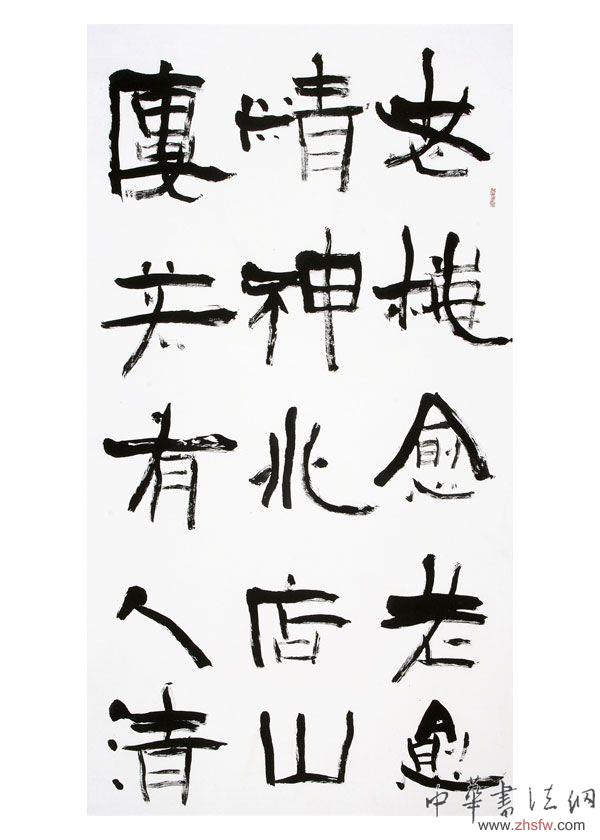 老梅愈老愈
精神水店山
廔若有人清
中華書法網
www.zhsfw.com